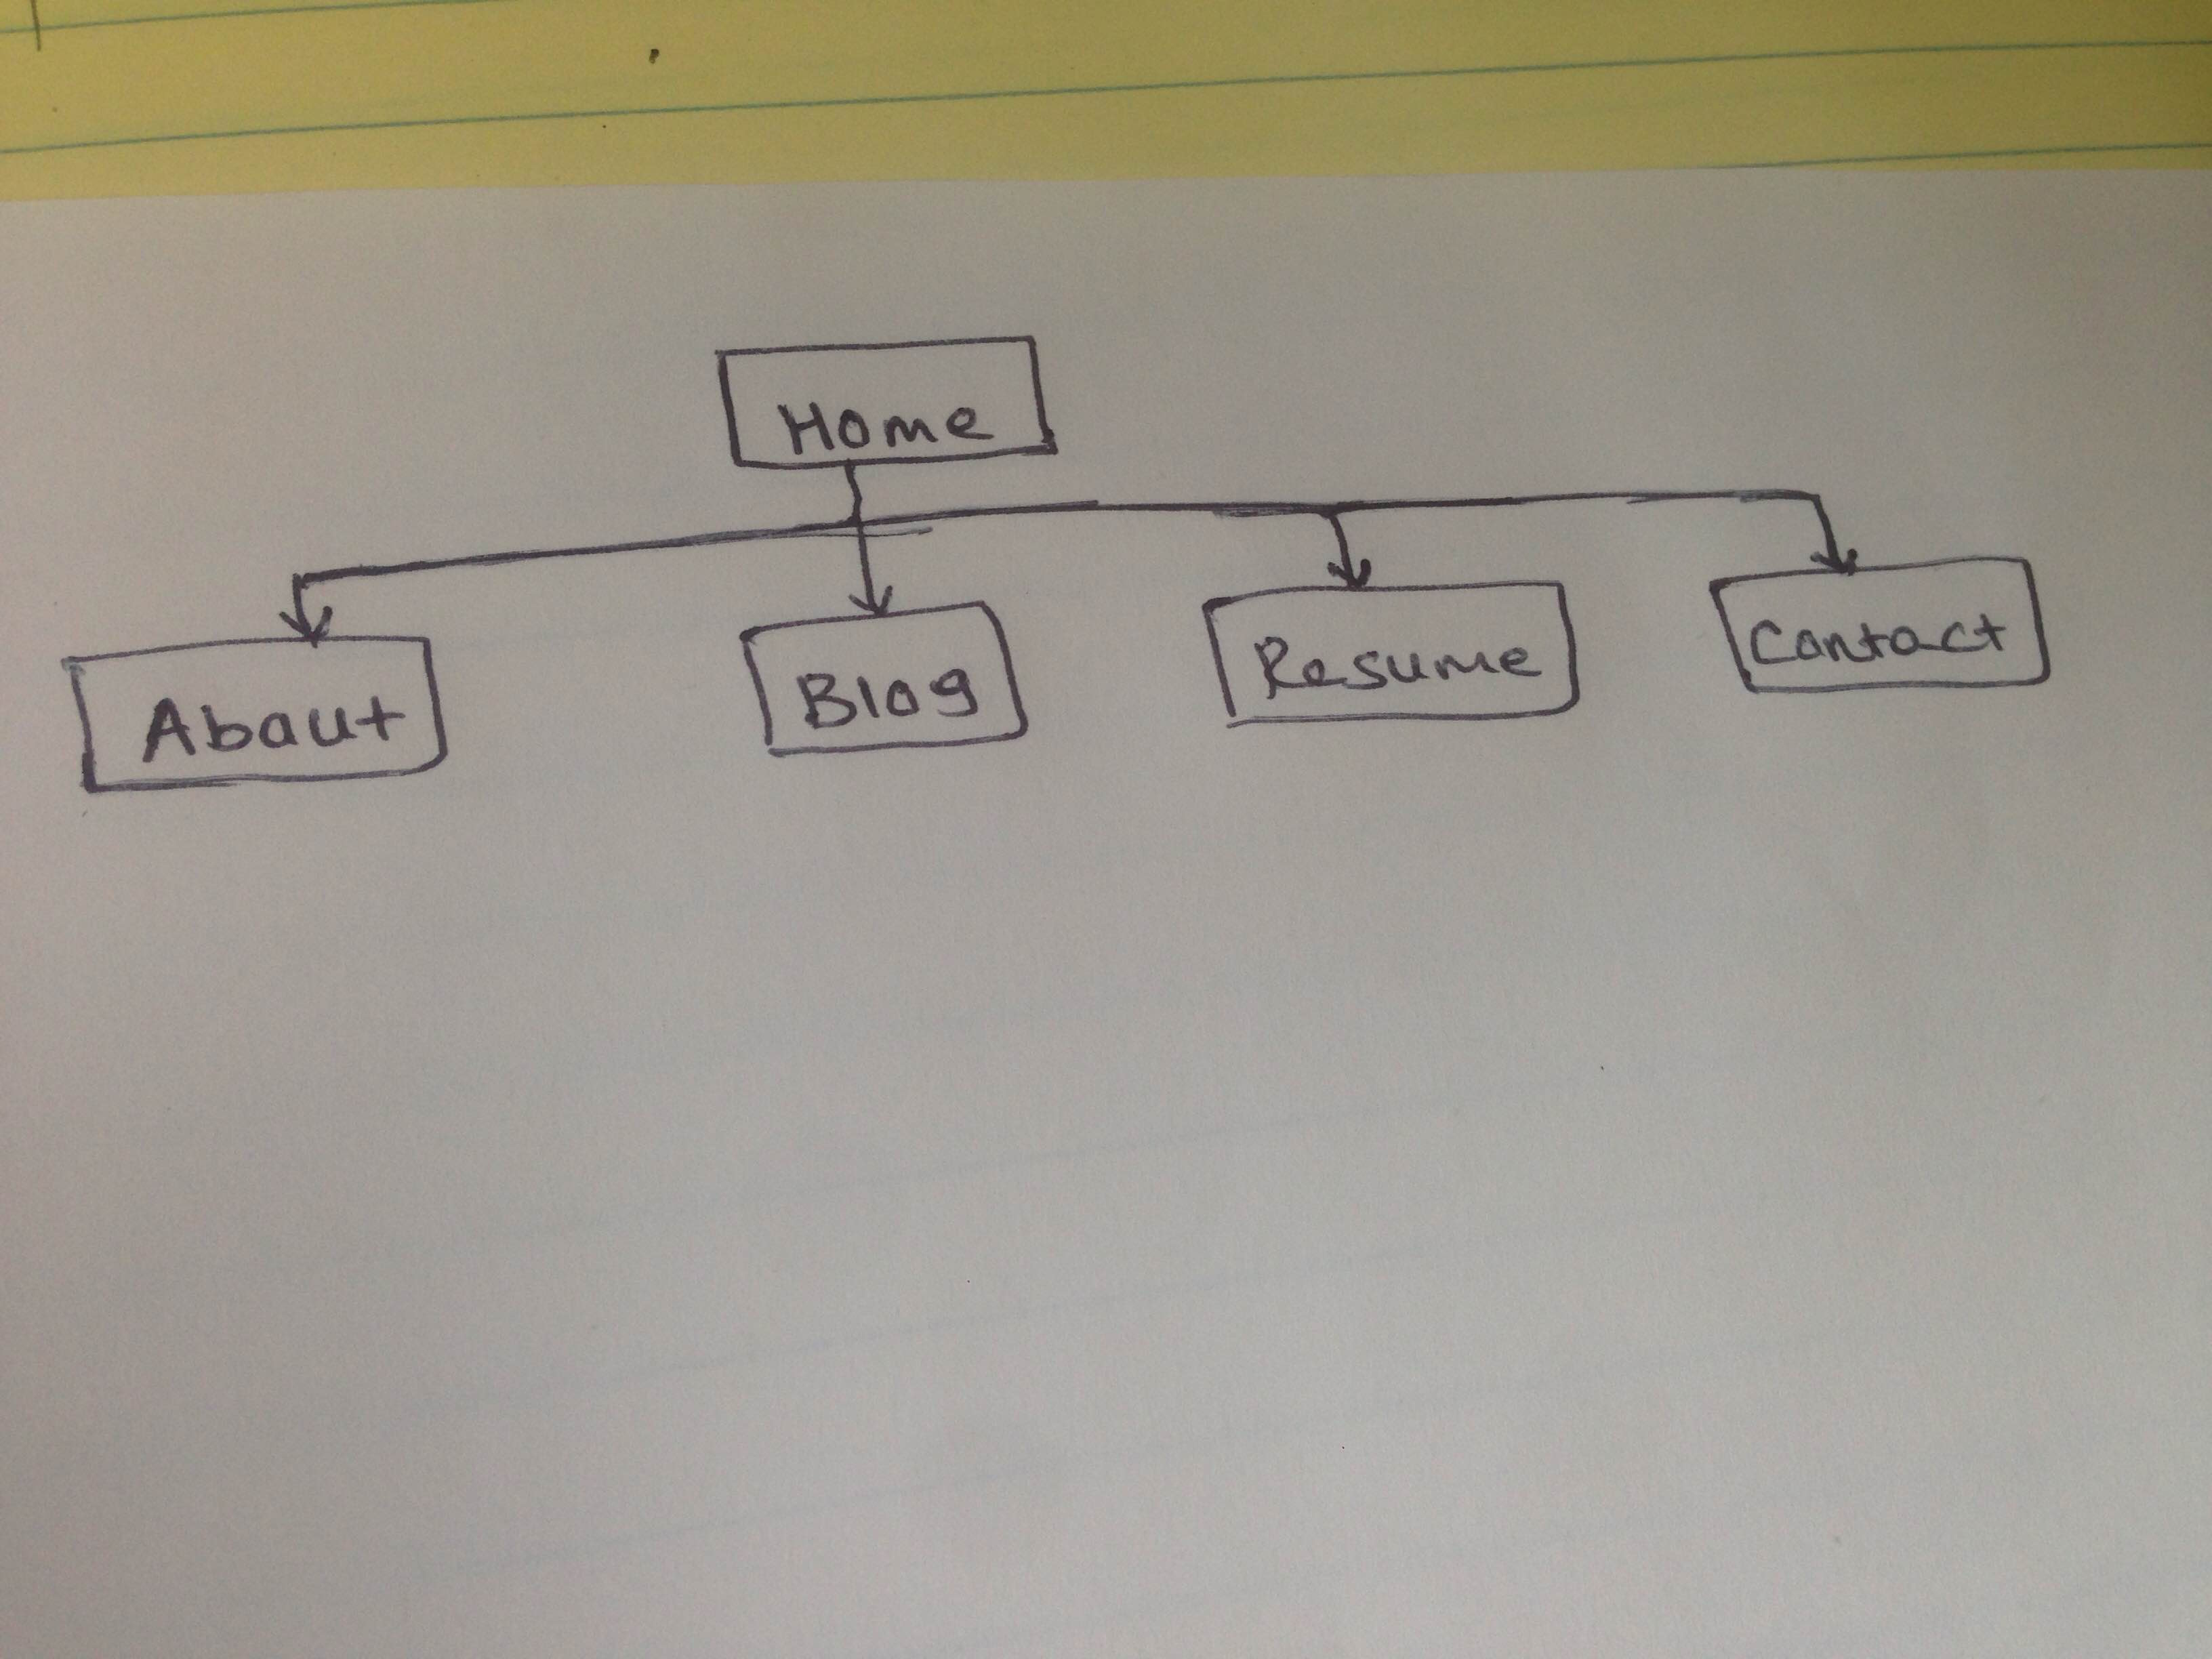 Home
About
Blog
Resume
Contact